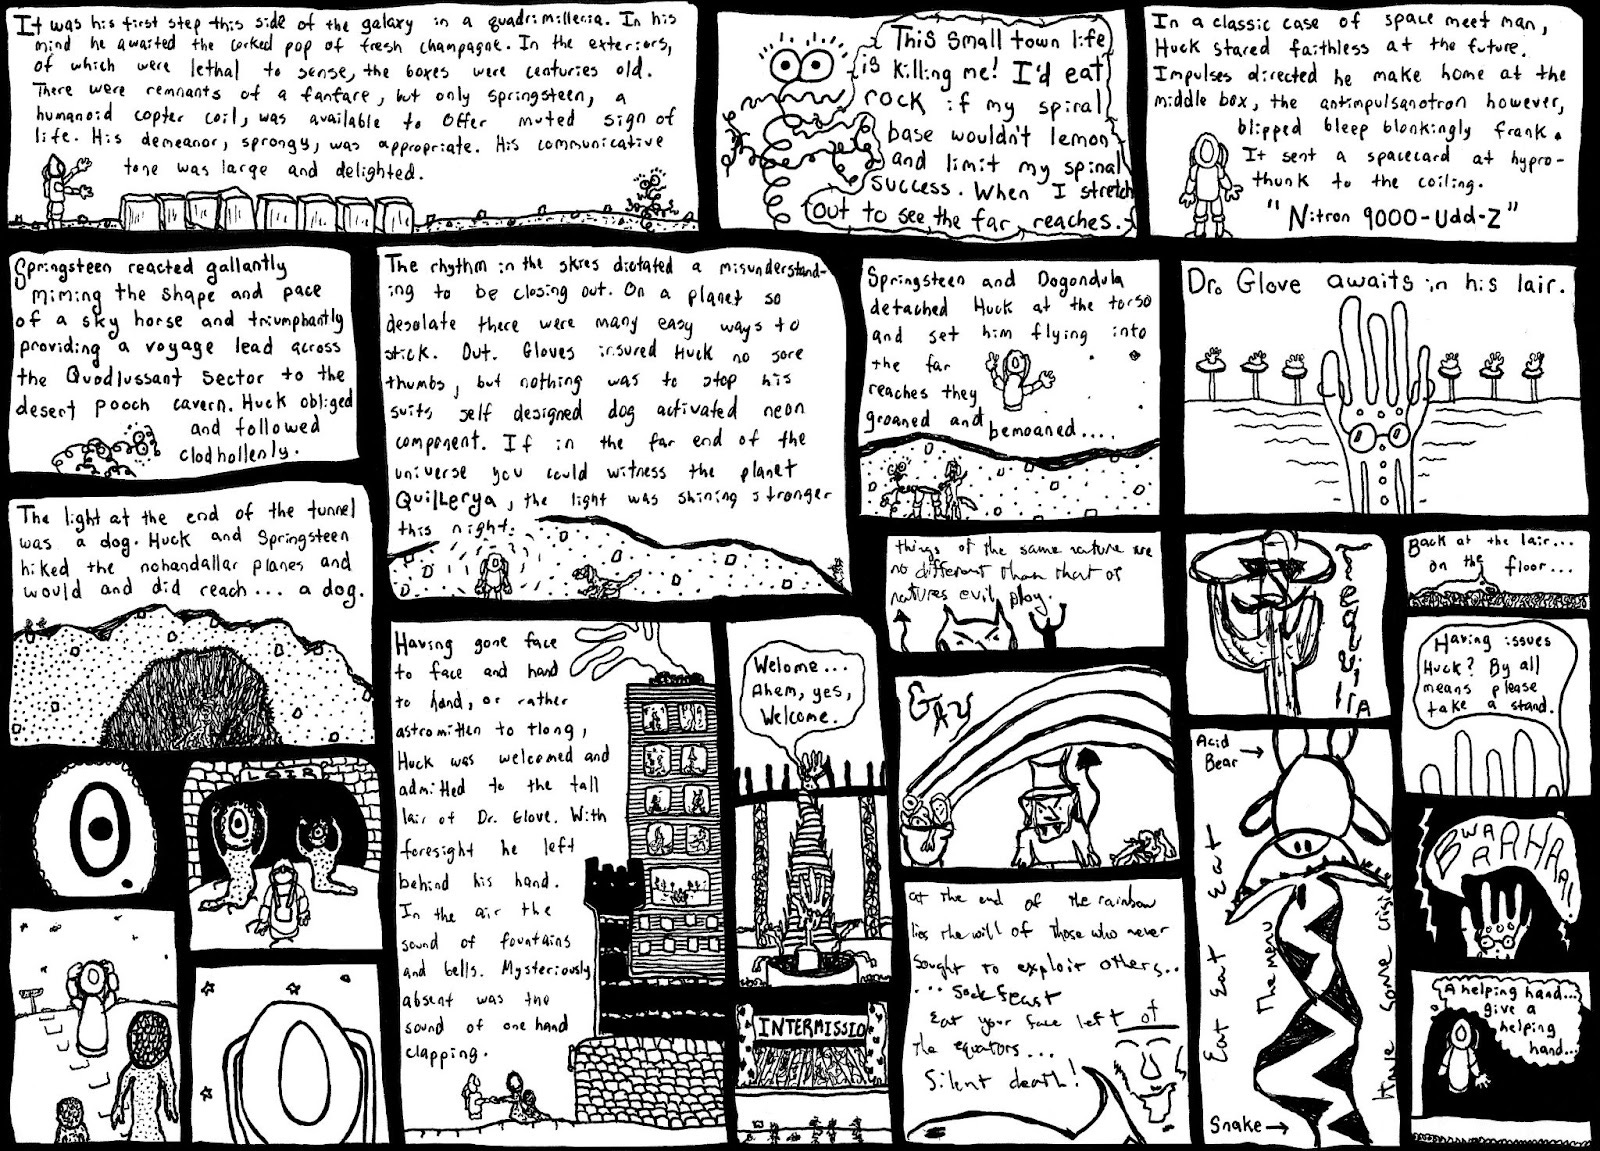 It was his first step this side of the galaxy in a quadrimillenia. In his
mind he awaited the corked pop of fresh champagne. In the exteriors,
of which were lethal to sense, the boxes were centuries old.
There were remnants of a fanfare, but only Springsteen, a
humanoid copter coil, was available to offer muted sign of
life. His demeanor, sprongy, was appropriate. His communicative
tone was large and delighted.
This small town life
is killing me! I'd eat
rock if my spiral
base wouldn't lemon
and limit my spinal
success. When I stretch
out to see the far reaches.
In a classic case of space meet man,
Huck stared faithless at the future.
Impulses directed he make home at the
middle box, the antimpulsanotron however,
blipped bleep blonkingly frank.
It sent a spacecard at hypro-
thunk to the coiling.
"Nitron 9000-Udd-Z"
Springsteen reacted gallantly
miming the shape and pace
of a sky horse and triumphantly
providing a voyage lead across
the Quodlussant Sector to the
desert pooch cavern. Huck obliged
and followed
clodhollenly.
The rhythm in the skies dictated a misunderstand-
ing to be closing out. On a planet so
desolate there were many easy ways to
stick. Out. Gloves insured Huck no sore
thumbs, but nothing was to stop his
suits self designed dog activated neon
component. If in the far end of the
universe you could witness the planet
Quillerya, the light was shining stronger
this night.
Springsteen and Dogondula
detached Huck at the torso
and set him flying into
the far
reaches they
groaned and bemoaned....
Dr. Glove awaits in his lair.
The light at the end of the tunnel
was a dog. Huck and Springsteen
hiked the nohandallar planes and
would and did reach... a dog.
LAIR
Having gone face
to face and hand
to hand, or rather
astromitten to tlong,
Huck was welcomed and
admitted to the tall
lair of Dr. Glove. With
foresight he left
behind his hand.
In the air the
sound of fountains
and bells. Mysteriously
absent was the
sound of one hand
clapping.
Welome...
Ahem, yes,
Welcome.
INTERMISSIO
things of the same nature are
no different than that of
natures evil ploy.
GAY
at the end of the rainbow
lies the will of those who never
sought to exploit others...
... Sock feast
Eat your face left of
the equators...
Silent death!
Tequilla
Acid
Bear →
Eat Eat Eat
The menu
Have some
Snake →
Back at the lair...
on the floor...
Having issues
Huck? By all
means please
take a stand.
BWAAARHAHA!
A helping hand...
give a
helping
hand...